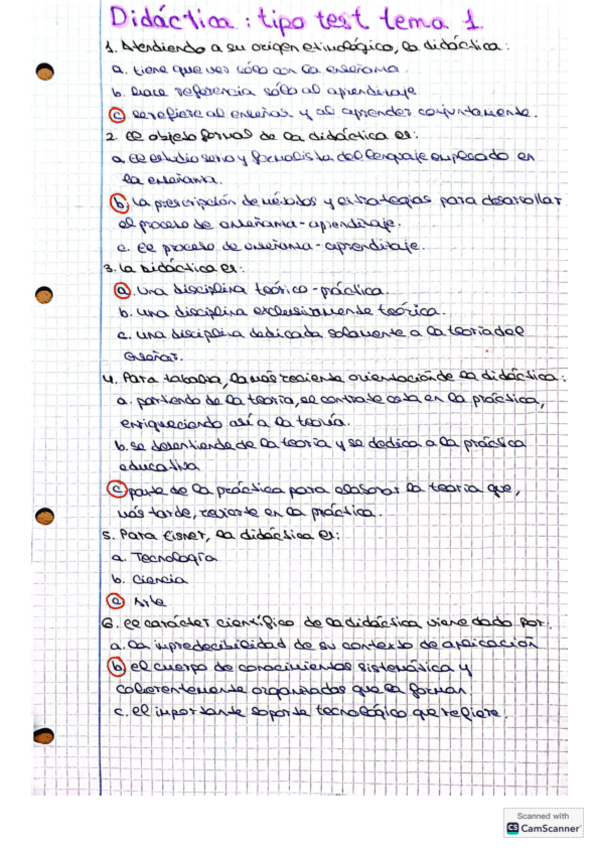 Didáctica: tipo test tema 1.
1. Atendiendo a su origen etimológico, la didáctica:
a. tiene que ver sólo con la enseñanza.
b. hace referencia sólo al aprendizaje
c se refiere al enseñar y al aprender conjuntamente.
2. El objeto formal de la didáctica es:
a. El estudio serio y formalista del lenguaje empleado en
la enseñanza.
b. La prescripción de métodos y estrategias para desarrollar
el proceso de enseñanza-aprendizaje.
c. El proceso de enseñanza-aprendizaje.
3. La Didáctica es:
a. una disciplina teórico-práctica.
b. una disciplina exclusivamente teórica.
c. una disciplina dedicada solamente a la teoría del
enseñar.
4. Para Tabada, la más reciente orientación de la didáctica:
a. partiendo de la teoría, se contrasta en la práctica,
enriqueciendo así a la teoría.
b. se desentiende de la teoría y se dedica a la práctica
educativa
c parte de la práctica para elaborar la teoría que,
más tarde, revierte en la práctica.
5. Para Eisner, la didáctica es:
a. Tecnología
b. Ciencia
c Arte
6. El carácter científico de la didáctica viene dado por:
a. La impredecibilidad de su contexto de aplicación
b el cuerpo de conocimientos sistemática y
coherentemente organizados que la forman
c. el importante soporte tecnológico que refiere.
Scanned with
CS CamScanner